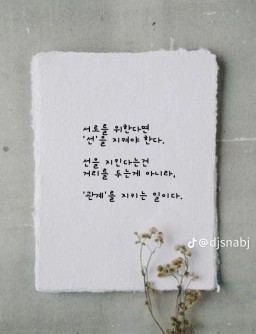 서로를 위한다면
'선'을 지켜야 한다.
선을 지킨다는건
거리를 두는게 아니라,
'관계'를 지키는 일이다.
@djsnabj